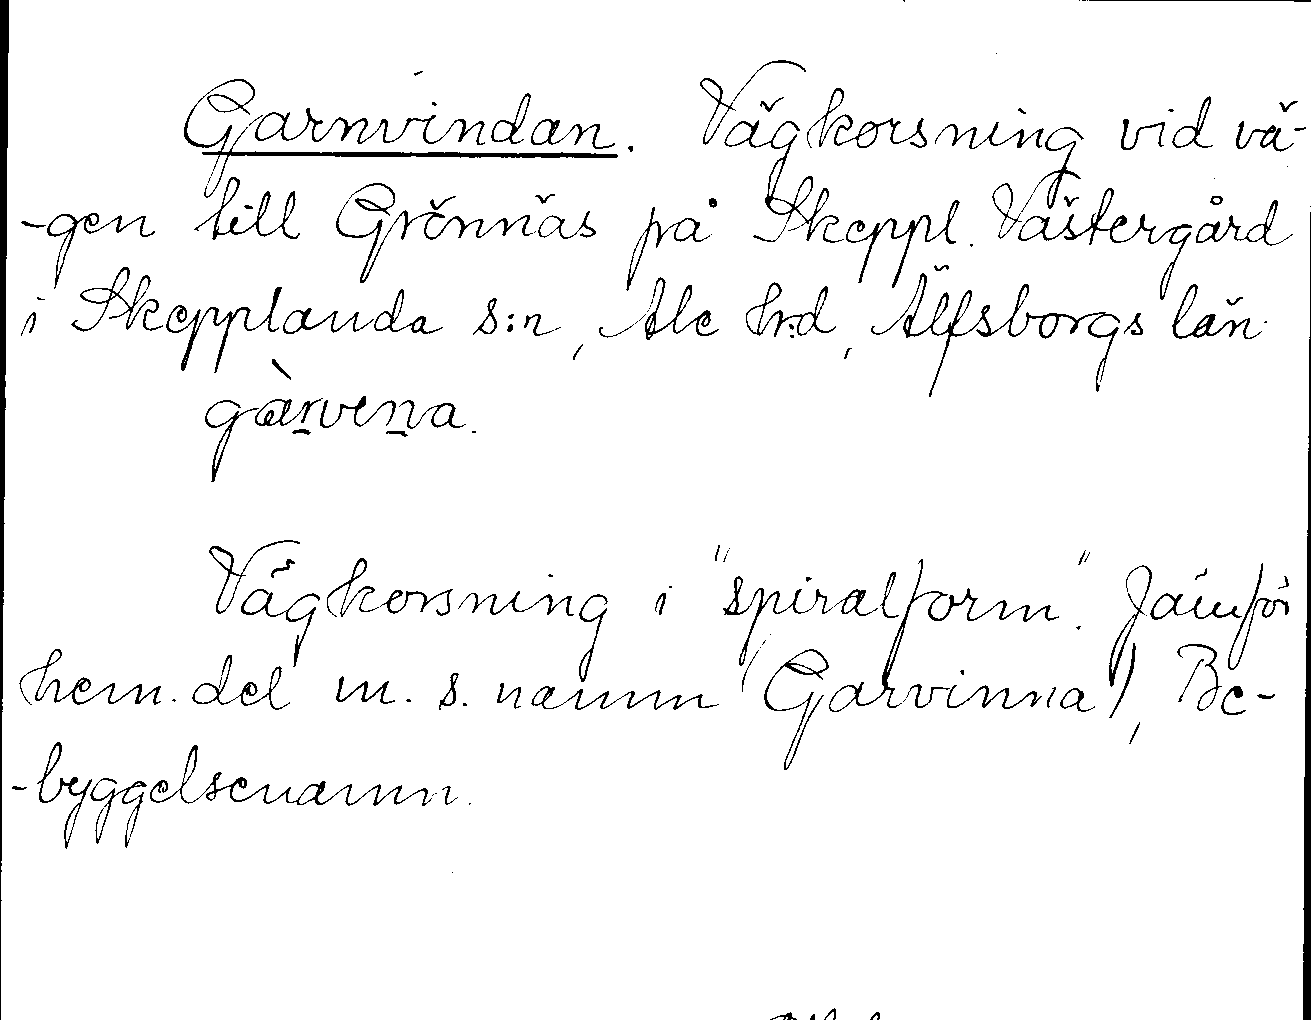 Garnvindan. Vägkorsning vid vä-
-gen till Grönnäs på Skeppl. Västergård
i Skepplanda s:n, Ale hrd, Älfsborgs län
gàrvena.
Vägkorsning i "spiralform". Jämför
hem. del m. s. namn (Garvinna), Be-
-byggelsenamn.